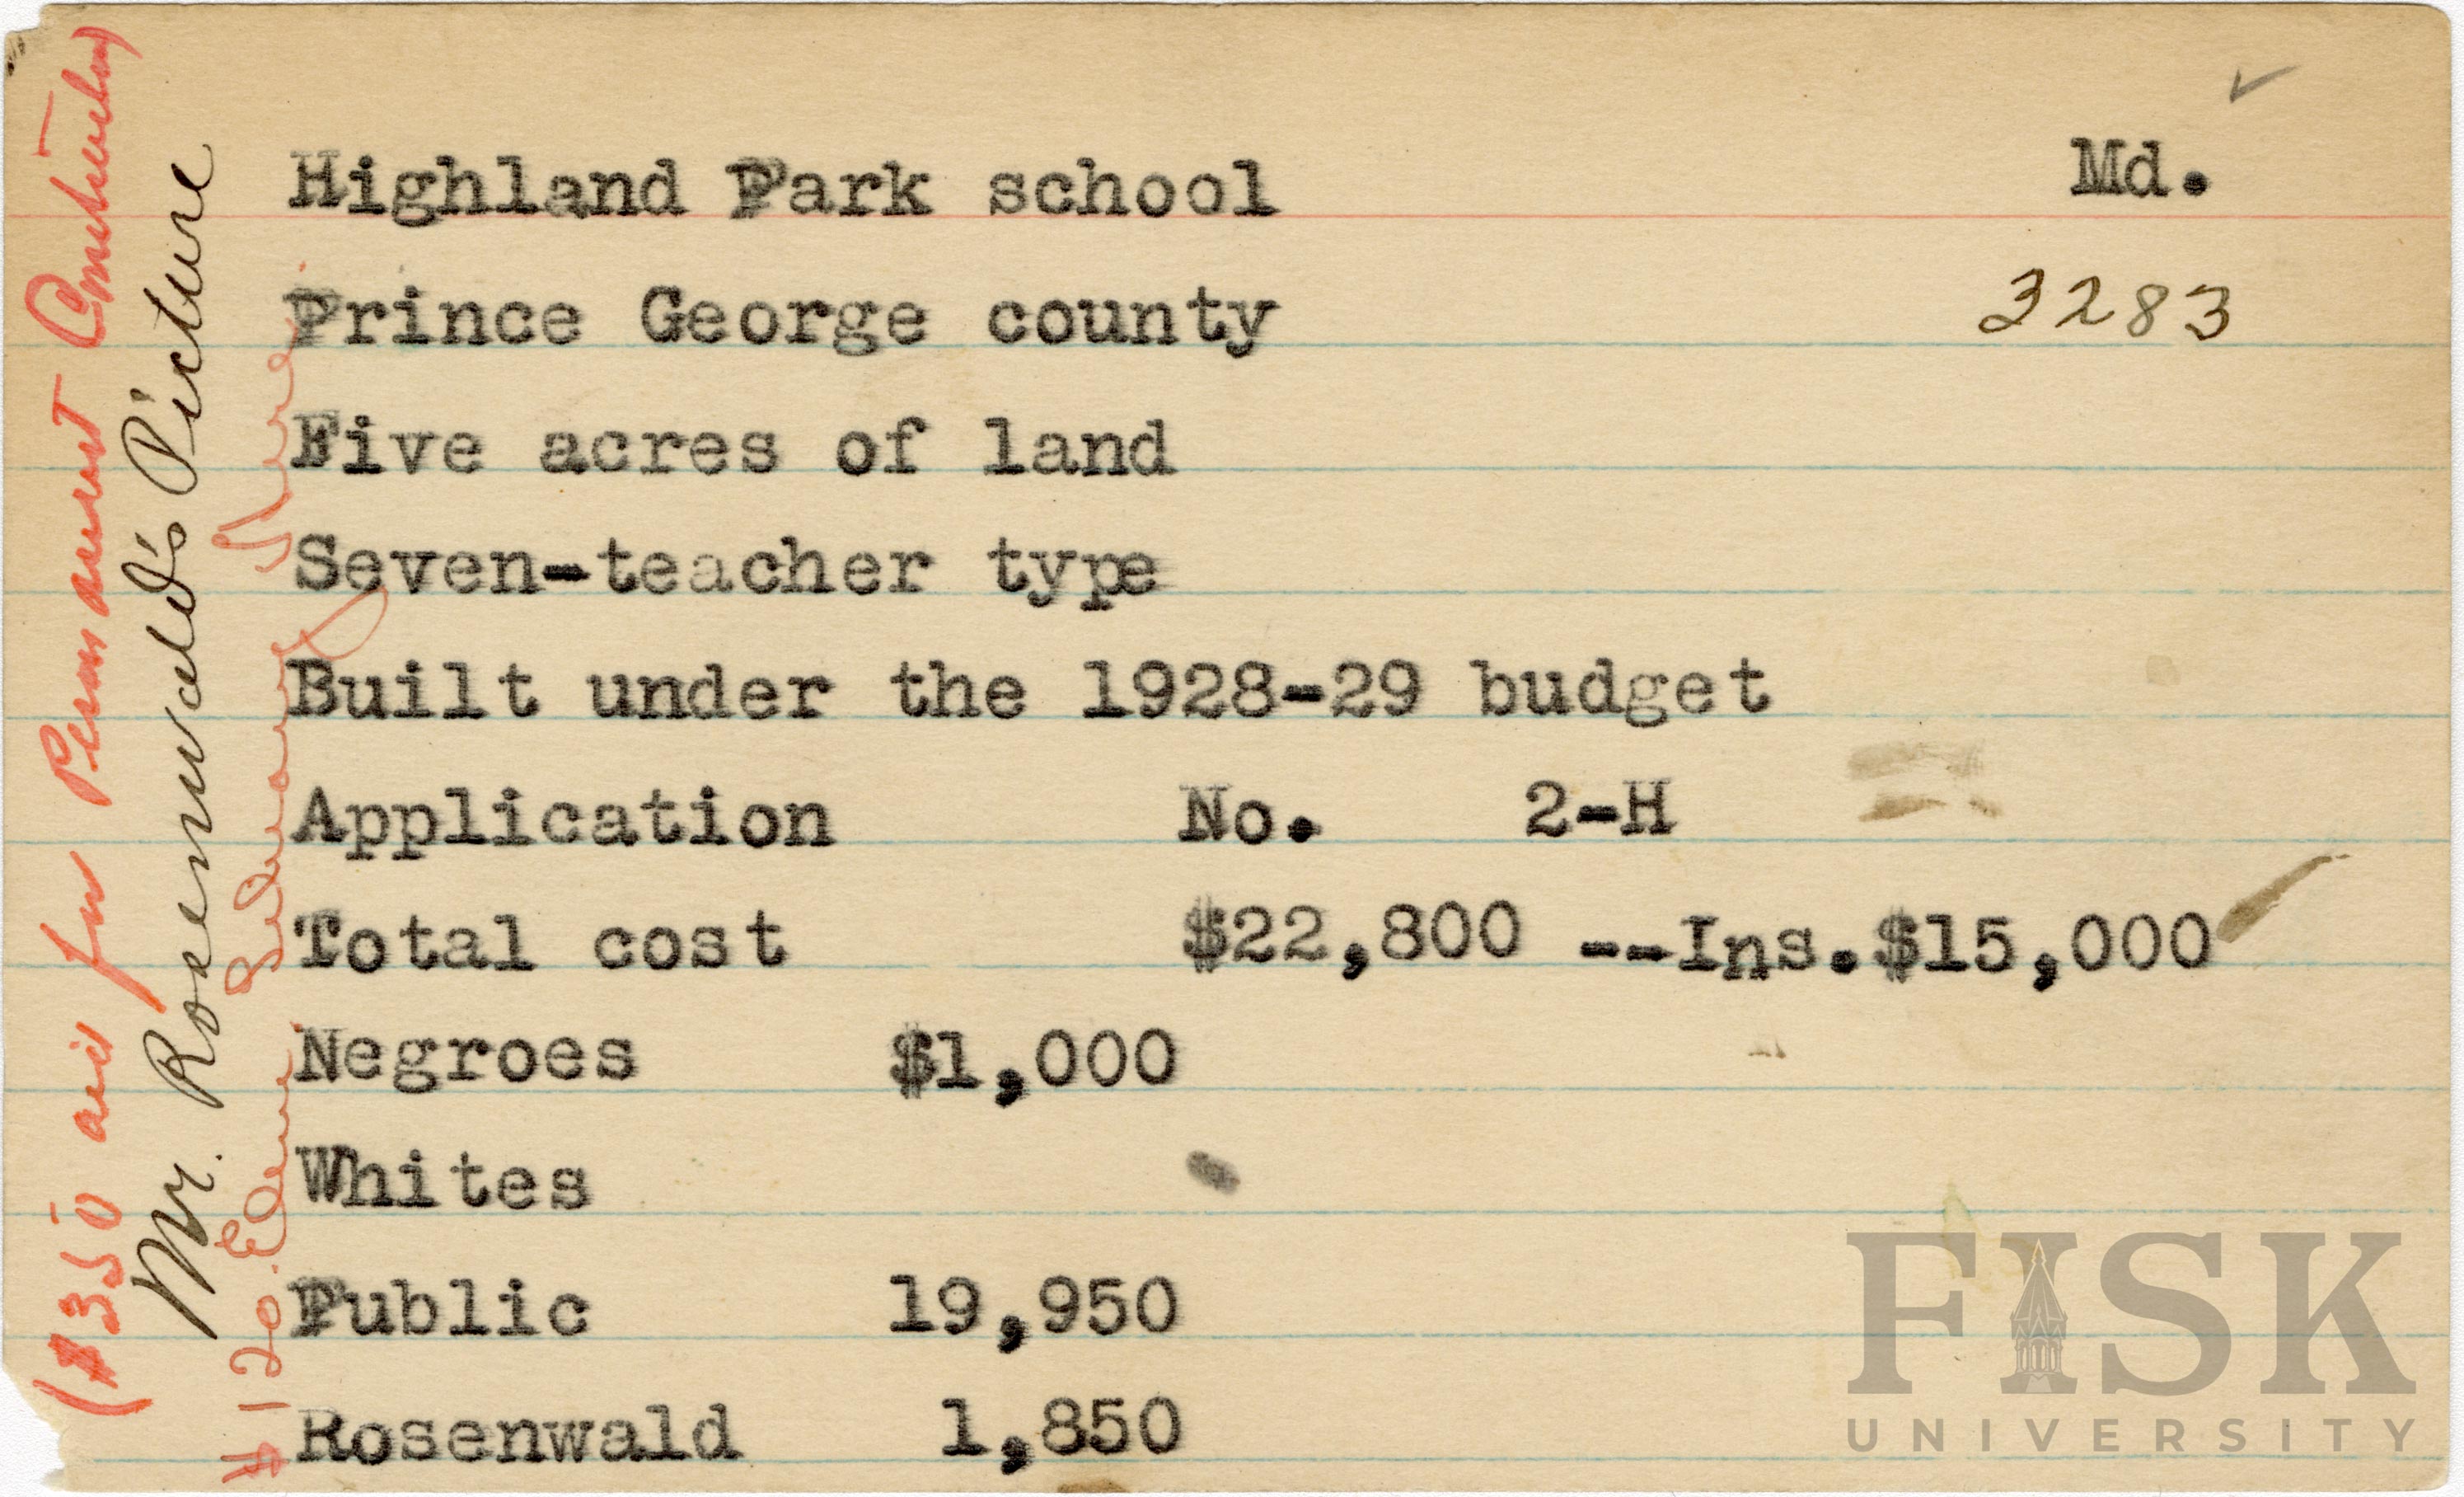 Highland Park school Md.
Prince George county 3283
Five acres of land
Seven-teacher type
Built under the 1928-29 budget
Application No. 2-H
Total cost $22,800 --Ins.$15,000
Negroes $1,000
Whites
Public 19,950
Rosenwald 1,850
($350 aid for Permanent Construction)
Mr. Rosenwald's Picture
$120. Elem Library
FISK
UNIVERSITY